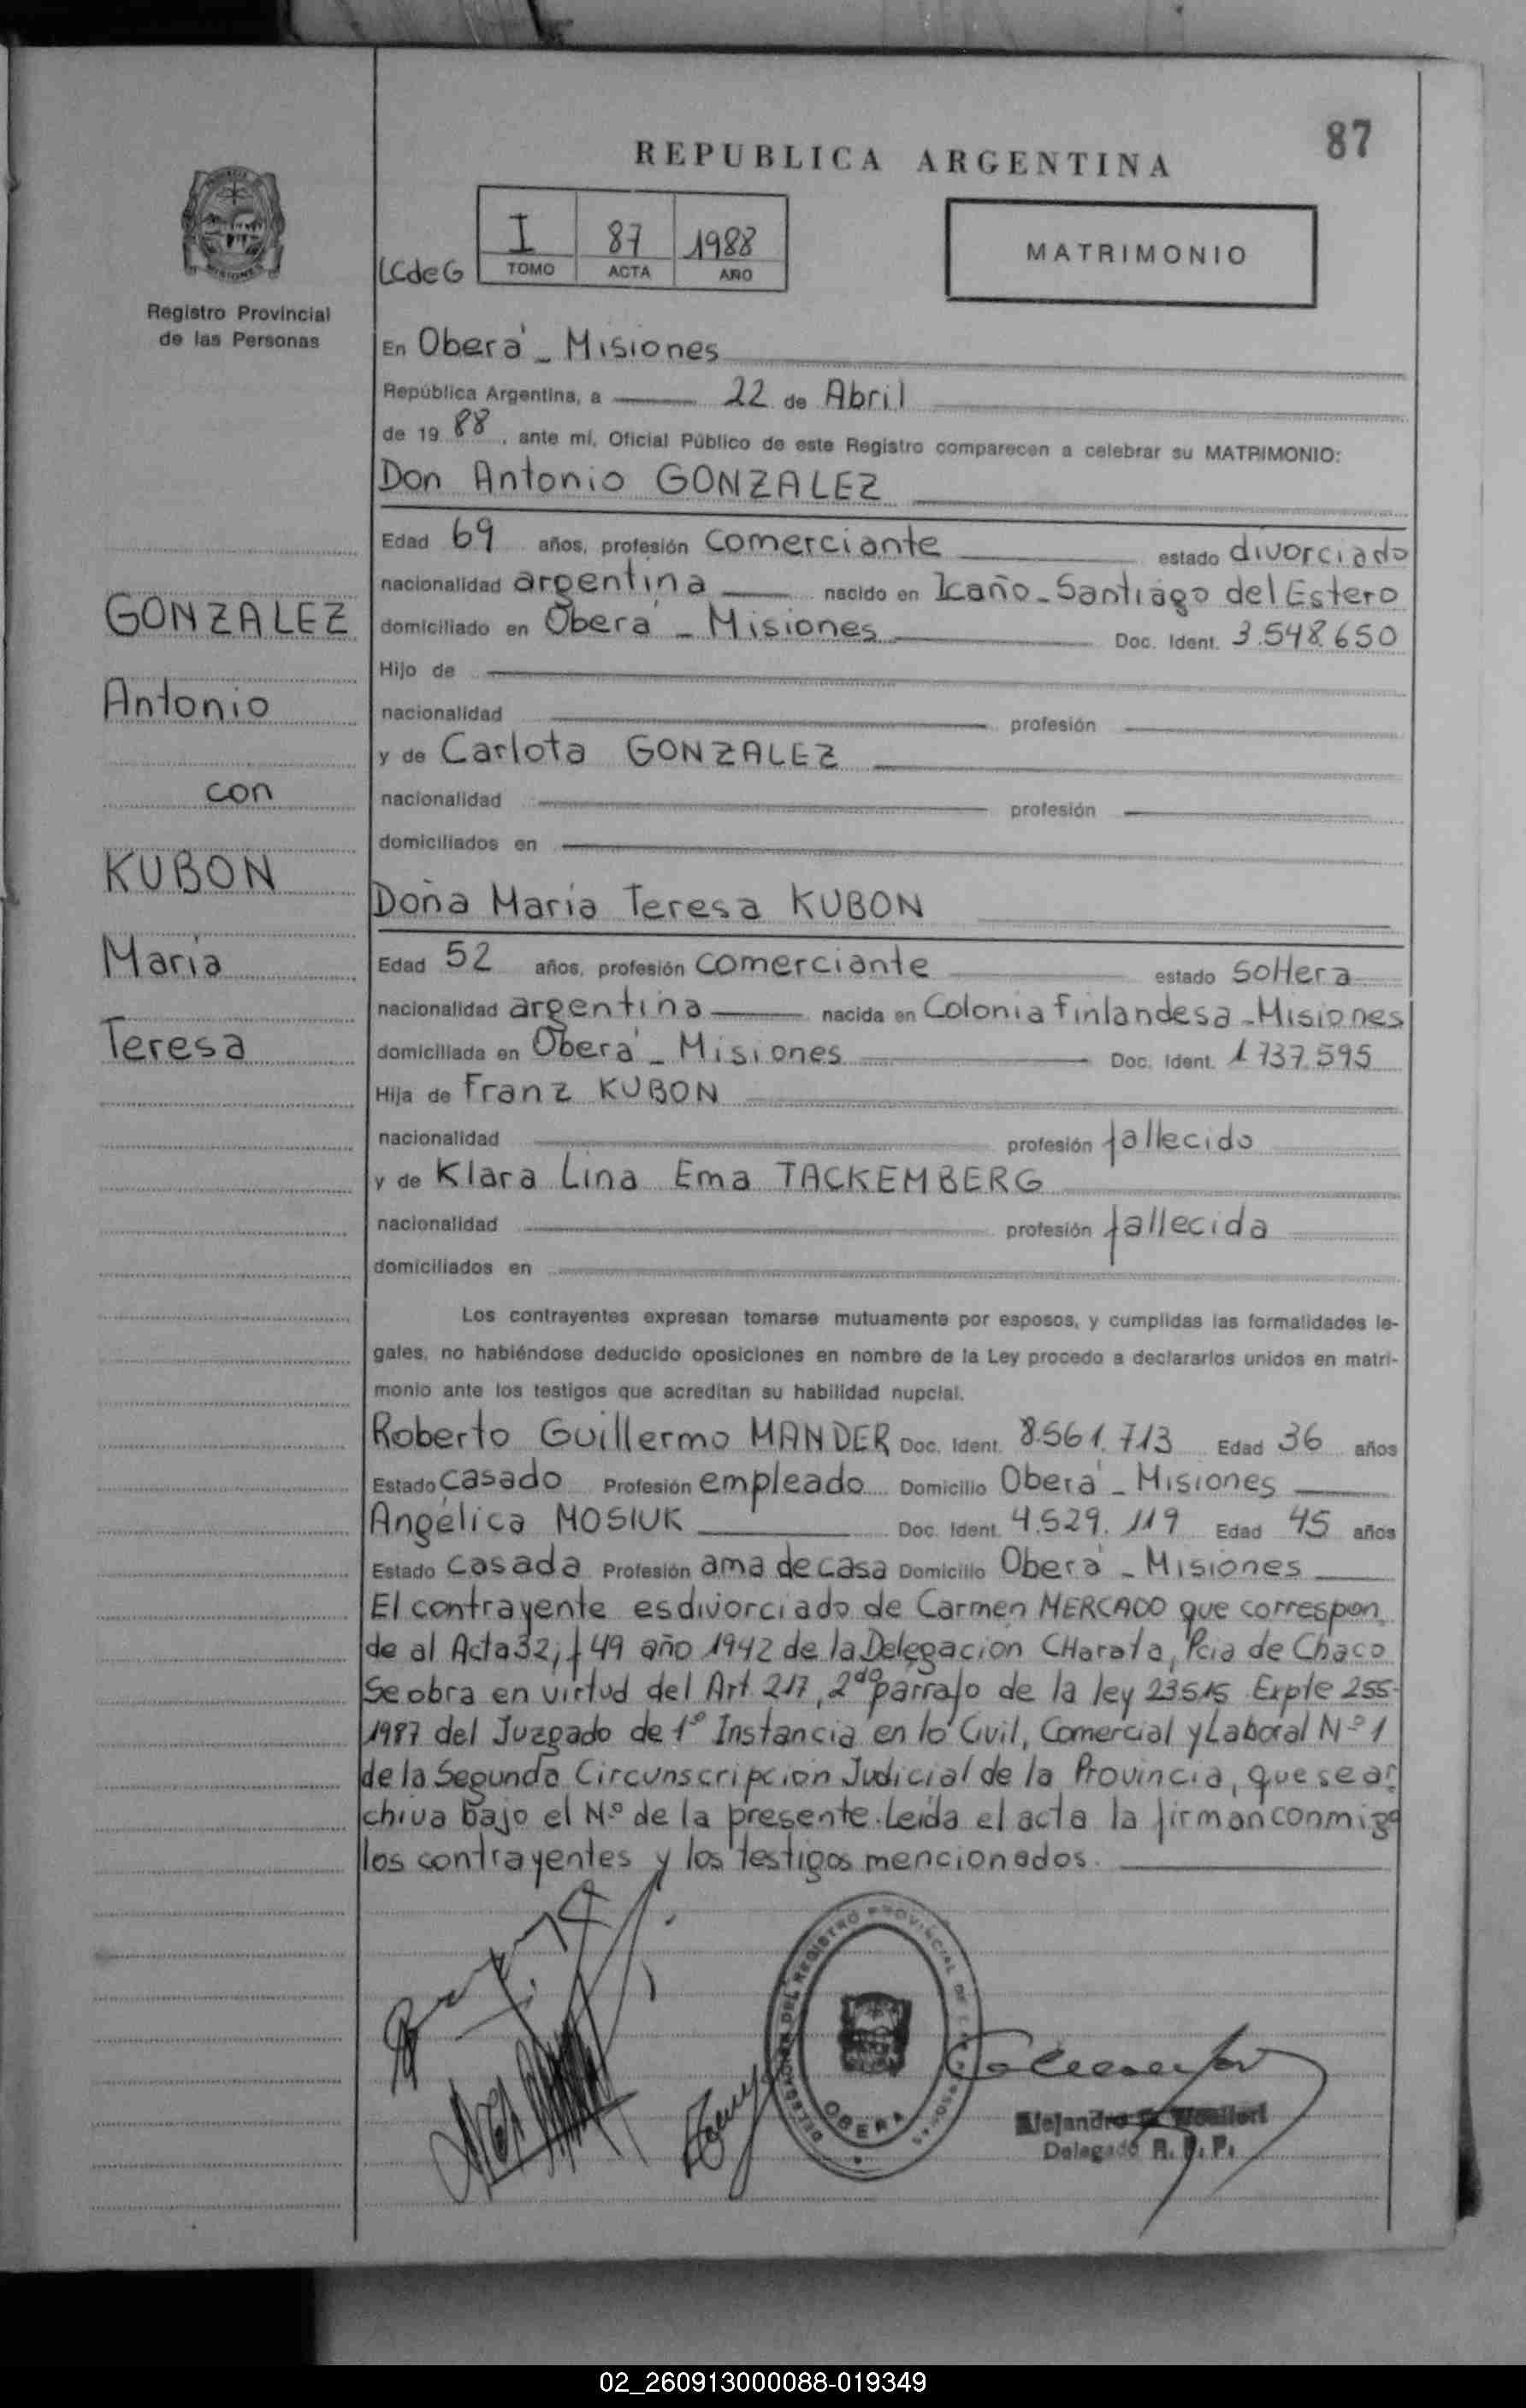 87
REPUBLICA ARGENTINA
I 87 1988
TOMO ACTA AÑO
LCdeG
MATRIMONIO
Registro Provincial
de las Personas
En Oberá - Misiones
República Argentina, a 22 de Abril
de 19 88, ante mí, Oficial Público de este Registro comparecen a celebrar su MATRIMONIO:
Don Antonio GONZALEZ
Edad 69 años, profesión comerciante estado divorciado
nacionalidad argentina nacido en Icaño - Santiago del Estero
domiciliado en Oberá - Misiones Doc. Ident. 3.548.650
Hijo de
nacionalidad profesión
y de Carlota GONZALEZ
nacionalidad profesión
domiciliados en
Doña María Teresa KUBON
Edad 52 años, profesión comerciante estado soltera
nacionalidad argentina nacida en Colonia Finlandesa - Misiones
domiciliada en Oberá - Misiones Doc. Ident. 1.737.595
Hija de Franz KUBON
nacionalidad profesión fallecido
y de Klara Lina Ema TACKEMBERG
nacionalidad profesión fallecida
domiciliados en
GONZALEZ
Antonio
con
KUBON
María
Teresa
Los contrayentes expresan tomarse mutuamente por esposos, y cumplidas las formalidades le-
gales, no habiéndose deducido oposiciones en nombre de la Ley procedo a declararlos unidos en matri-
monio ante los testigos que acreditan su habilidad nupcial.
Roberto Guillermo MANDER Doc. Ident. 8.561.713 Edad 36 años
Estado casado Profesión empleado Domicilio Oberá - Misiones
Angélica MOSIUK Doc. Ident. 4.529.119 Edad 45 años
Estado casada Profesión ama de casa Domicilio Oberá - Misiones
El contrayente es divorciado de Carmen MERCADO que correspon
de al Acta 32, f 49 año 1942 de la Delegación CHarata, Pcia de Chaco
Se obra en virtud del Art. 217, 2do parrafo de la ley 23515 Expte 255-
1987 del Juzgado de 1º Instancia en lo Civil, Comercial y Laboral Nº 1
de la Segunda Circunscripción Judicial de la Provincia, que se ar-
chiva bajo el Nº de la presente. Leída el acta la firman conmigo
los contrayentes y los testigos mencionados.
DELEGACION DEL REGISTRO PROVINCIAL DE LAS PERSONAS
OBERA
Alejandro
Delegado R. P. P.
02_260913000088-019349